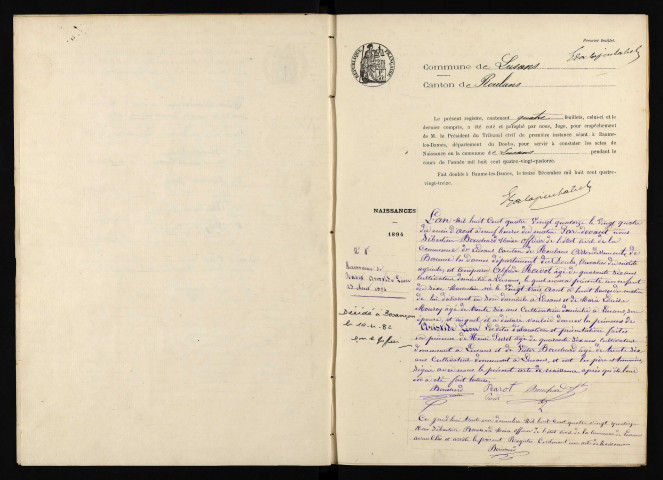 Premier feuillet.
RÉPUBLIQUE FRANÇAISE
Commune de Lusans
Canton de Roulans
Le présent registre, contenant quatre feuillets, celui-ci et le
dernier compris, a été coté et paraphé par nous, Juge, pour empêchement
de M. le Président du Tribunal civil de première instance séant à Baume-
les-Dames, département du Doubs, pour servir à constater les actes de
Naissance en la commune de Lusans pendant le
cours de l'année mil huit cent quatre-vingt-quatorze.
Fait double à Baume-les-Dames, le treize Décembre mil huit cent quatre-
vingt-treize.
NAISSANCES
1894
N° 1
Naissance de
Aristide Léon
23 Aout 1894
Décédé à Besançon
le 10-4-82
L'an mil huit Cent quatre Vingt quatorze le Vingt quatre
du mois d'Aout à neuf heures du matin Par devant nous
Sébastien Bouchard Maire officier de l'état civil de la
Commune de Lusans Canton de Roulans Arrondissement de
Baume les Dames département du Doubs, Chevalier du mérite
agricole, est comparu Alfred âgé de quarante six ans
Cultivateur domicilié à Lusans, lequel nous a présenté un enfant
du sexe Masculin né le Vingt trois Aout à huit heures du matin
de lui déclarant en son domicile à Lusans et de Marie Louise
âgée de trente six ans Cultivatrice domiciliée à Lusans son
épouse, et auquel il a déclaré vouloir donner les prénoms de
Aristide Léon Les dites déclaration et présentation faites
en présence de âgé de quarante six ans cultivateur
demeurant à Lusans et de Victor Bouchard âgé de trente six
ans Cultivateur demeurant à Lusans, et ont les père et témoins
signé avec nous le présent acte de naissance après qu'il leur
en a été fait lecture
Bouchard
Ce jourd'hui trente un décembre Mil huit Cent quatre vingt quatorze
Nous Sébastien Bouchard Maire officier de l'état civil de la commune de Lusans
avons Clos et arrêté le présent Registre Contenant un acte de Naissance
Bouchard